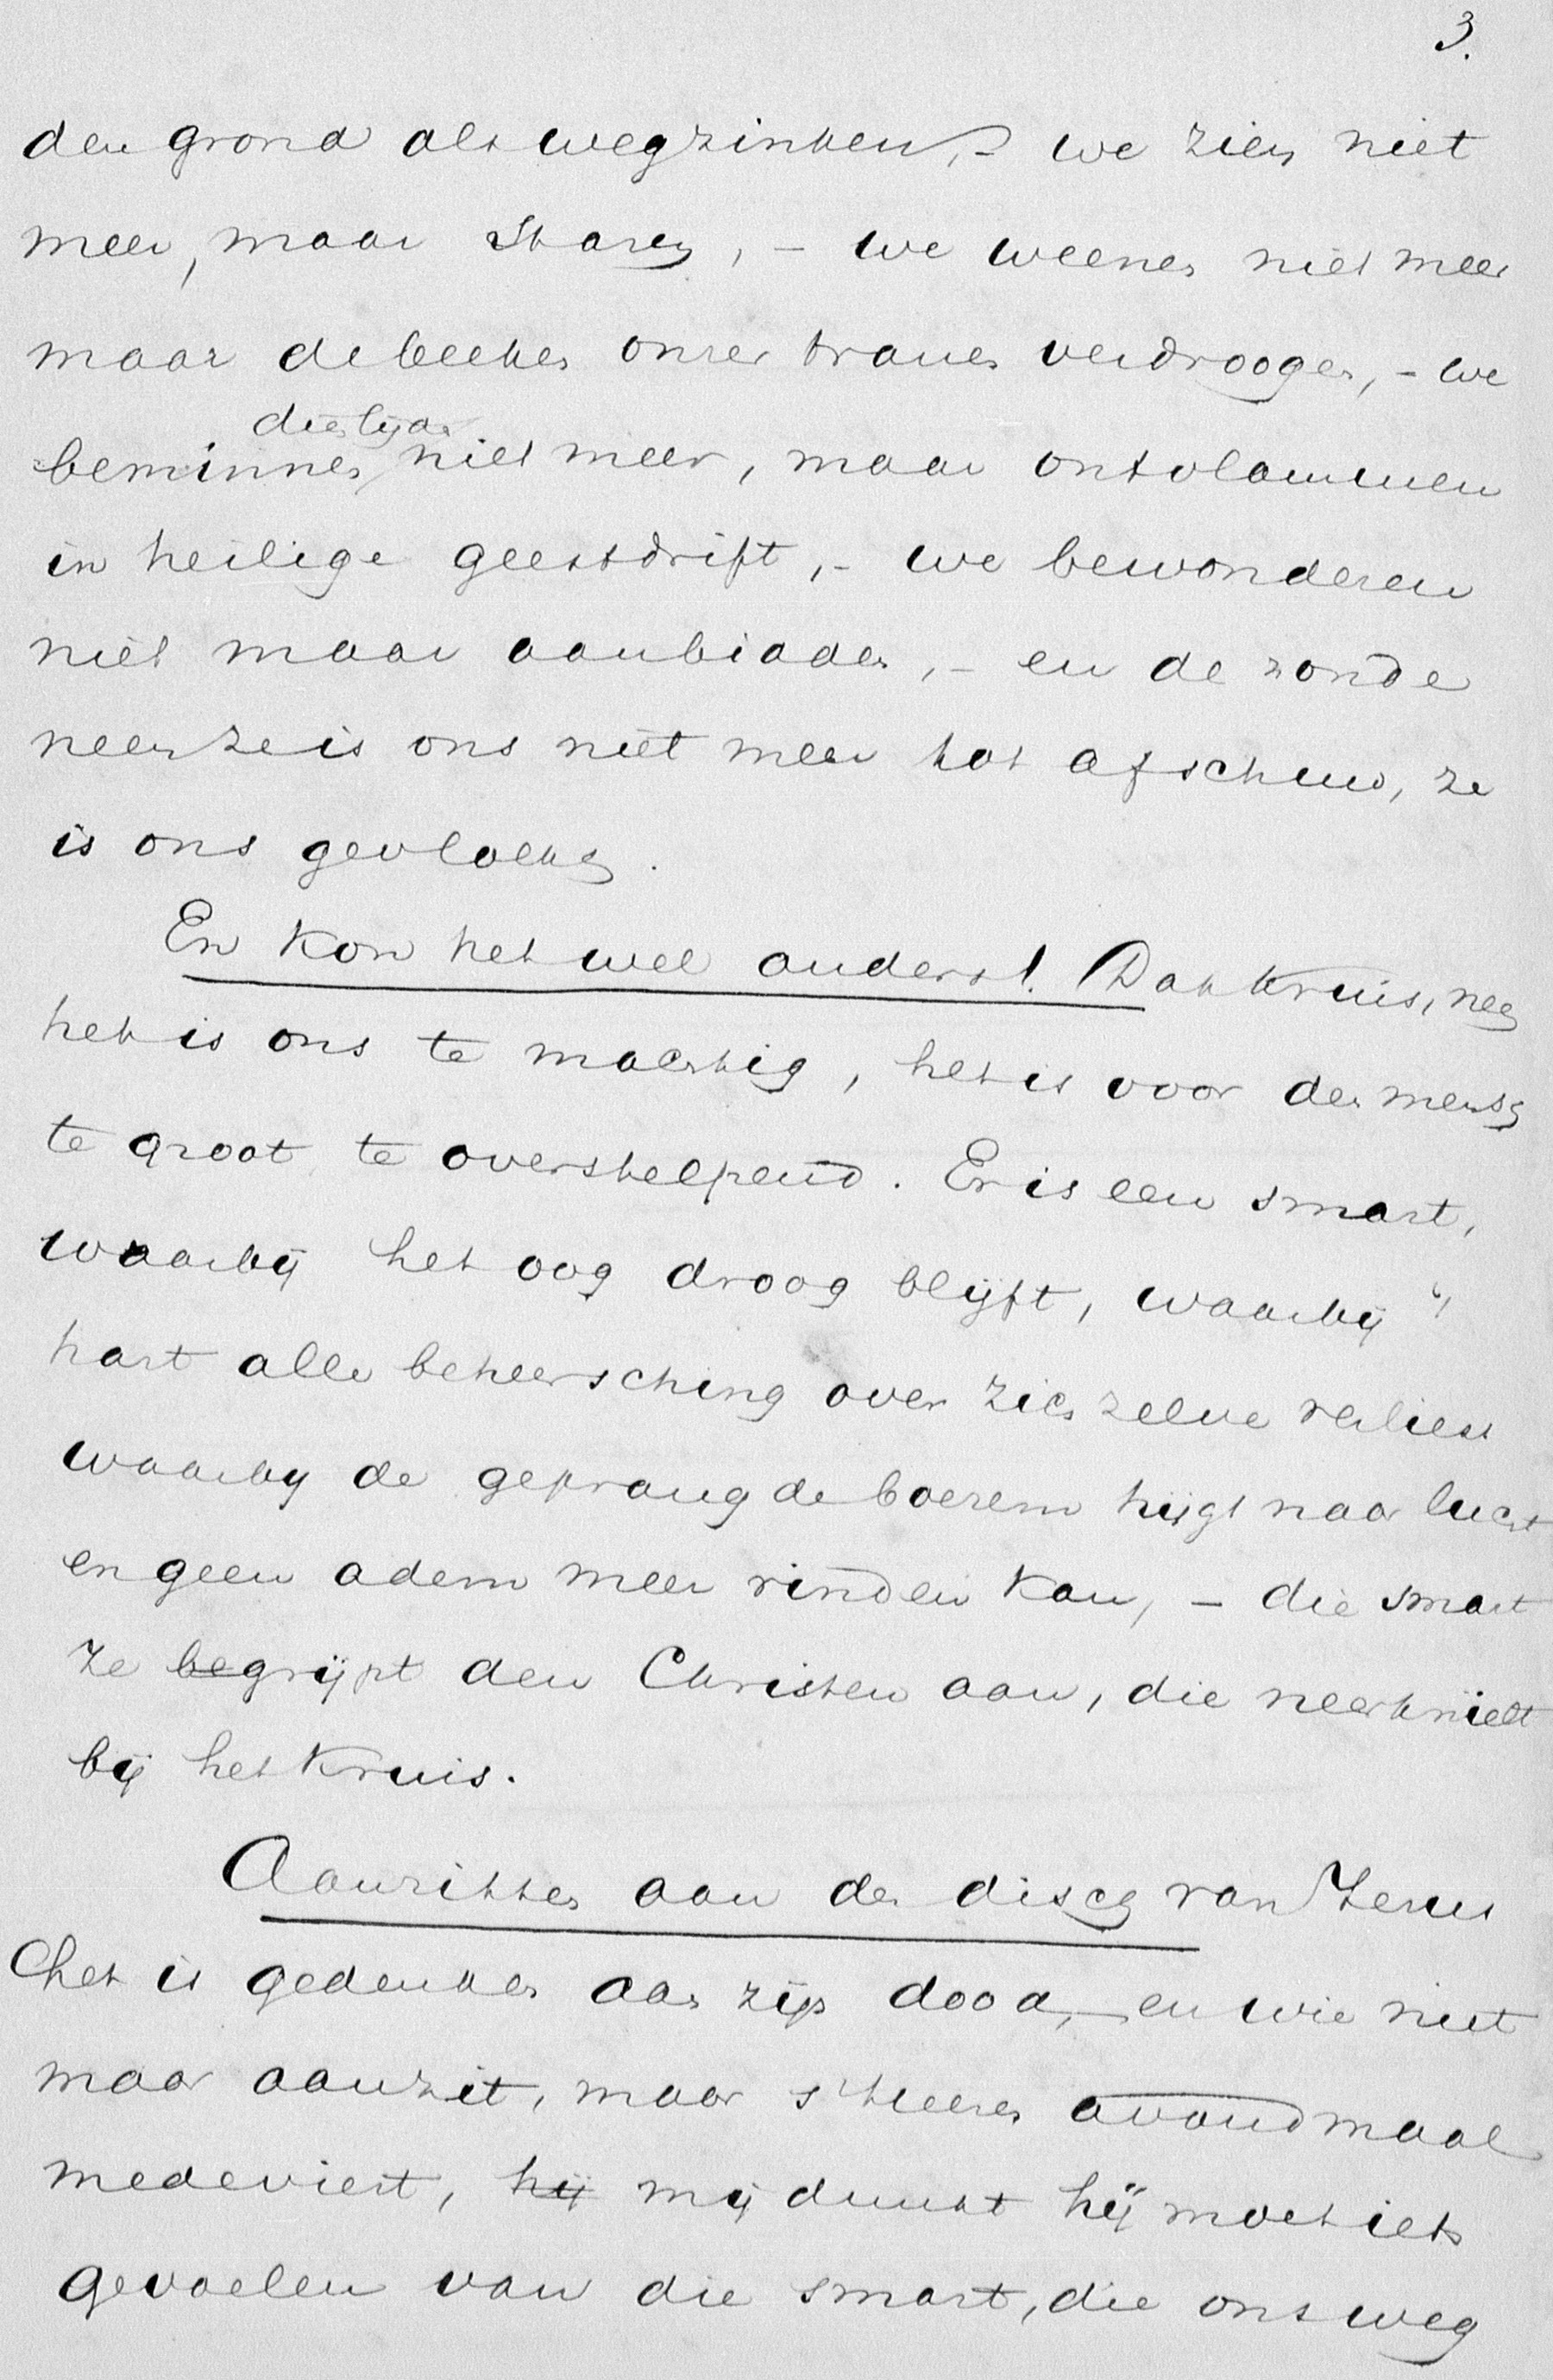 3.
den grond als wegzinken, - we zien niet
meer, maar staren, - we weenen niet meer
maar de beeken onzer tranen verdroogen, - we
dies lijden
beminnen niet meer, maar ontvlammen
in heilige geestdrift, - we bewonderen
niet maar aanbidden, - en de zonde
neen ze is ons niet meer tot afschuw, ze
is ons gevloekt.
En kon het wel anders! Dat kruis, neen
het is ons te machtig, het is voor den mensch
te groot te overstelpend. Er is een smart,
waarbij het oog droog blijft, waarbij 't
hart alle beheersching over zich zelve verliest
waarbij de geprangde boezem hijgt naar lucht
en geen adem meer vinden kan, - die smart
ze begrijpt den Christen aan, die neerknielt
bij het kruis.
Aanzitten aan den disch van Jezus
het is gedenken aan zijn dood, - en wie niet
maar aanzit, maar s'Heeren avondmaal
medeviert, hij mij dunkt hij moet iets
gevoelen van die smart, die ons weg